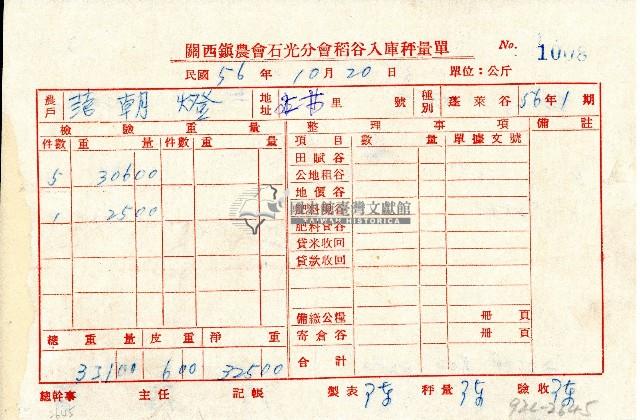 關西鎮農會石光分會稻谷入庫秤量單 No. 1008
民國56年10月20日 單位：公斤
農戶 朝燈 地址 里 號 種別 蓬萊谷56年1期
檢驗重量 整理事項 備註
件數 重量 件數 重量 項目 數量 單據文號
田賦谷
5 30600 公地租谷
地價谷
1 2500 肥料現谷
肥料貸谷
貸米收回
貸款收回
國史館臺灣文獻館
TAIWAN HISTORICA
備繳公糧 冊頁
總重量 皮重 淨重 寄倉谷 冊頁
33100 600 32500 合計
總幹事 主任 記帳 製表 秤量 驗收